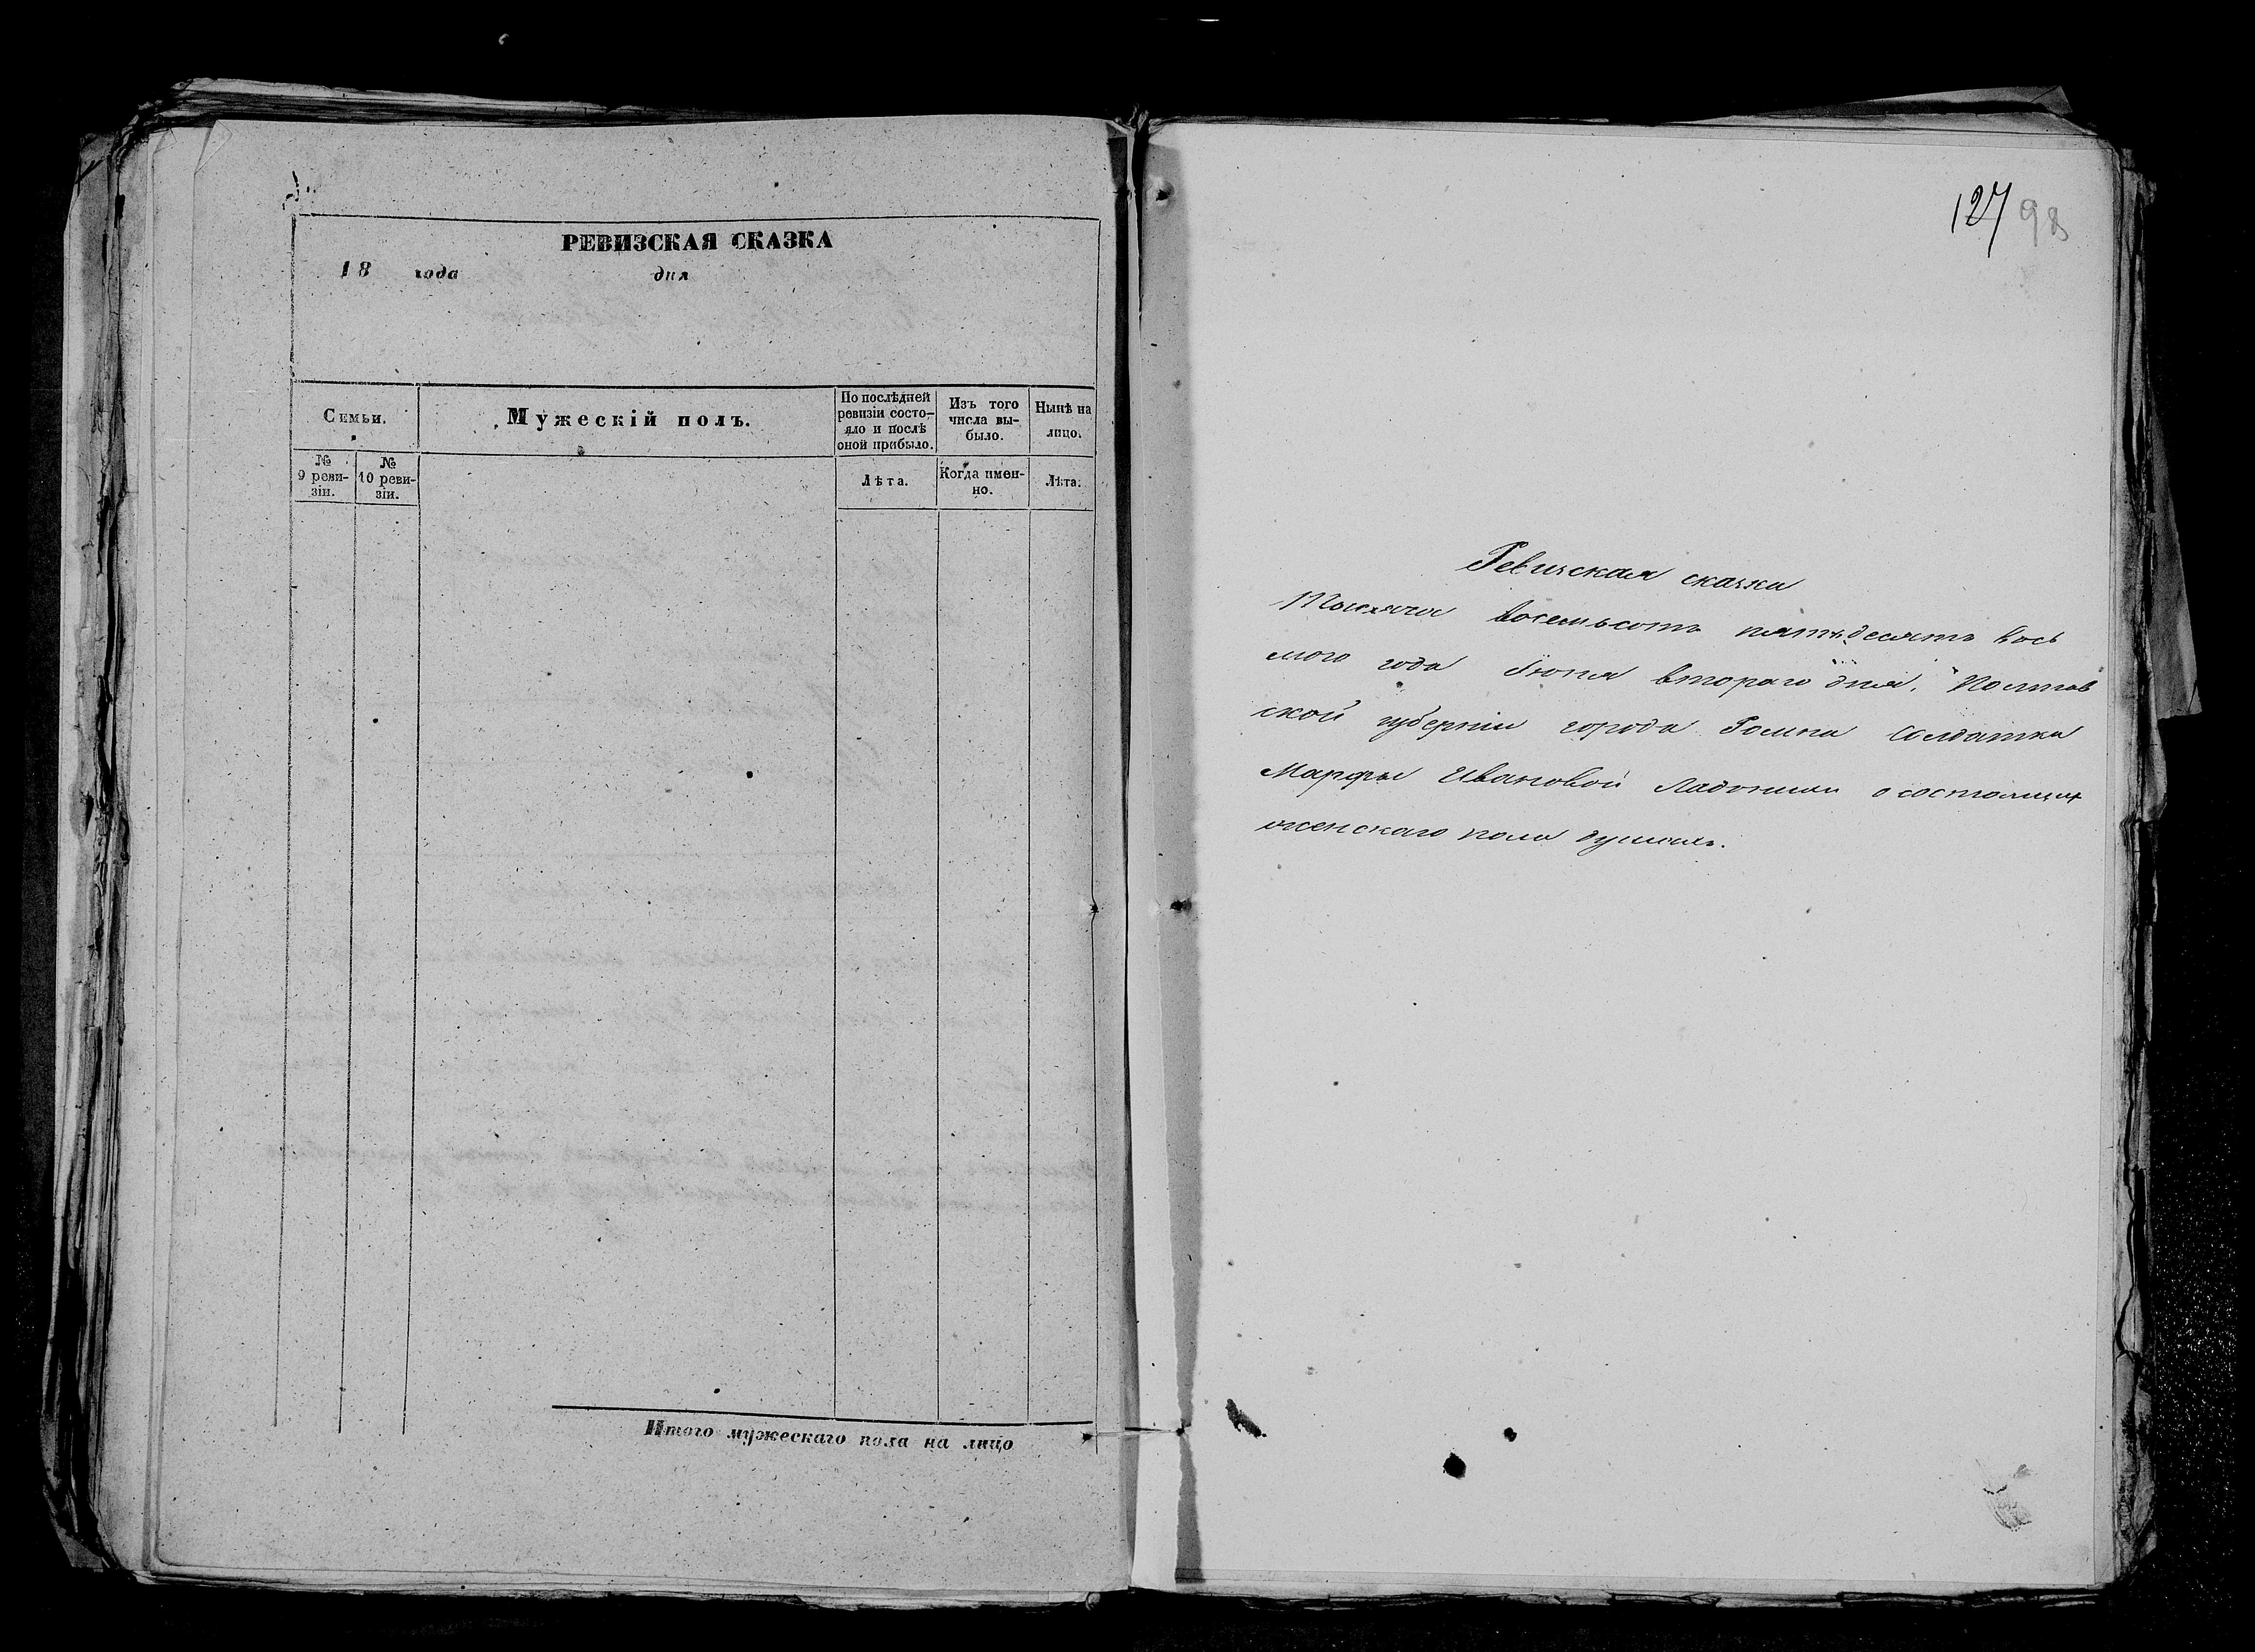 РЕВИЗСКАЯ СКАЗКА
18 года дня
Семьи.
Мужескій полъ.
По послѣдней ревизіи состо-
яло и послѣ оной прибыло.
Изъ того числа вы-
было.
Нынѣ на лицо.
№ 9 реви-
зіи.
№ 10 реви-
зіи.
Лѣта.
Когда имен-
но.
Лѣта.
Итого мужескаго пола на лицо
127 98
Ревизская сказка
Тысяча восемьсотъ пятьдесятъ вось
мого года Іюня втораго дня. Полтав
ской губерніи города Ромна Солдатки
Марфы Ивановой о состоящих
женскаго пола душахъ.